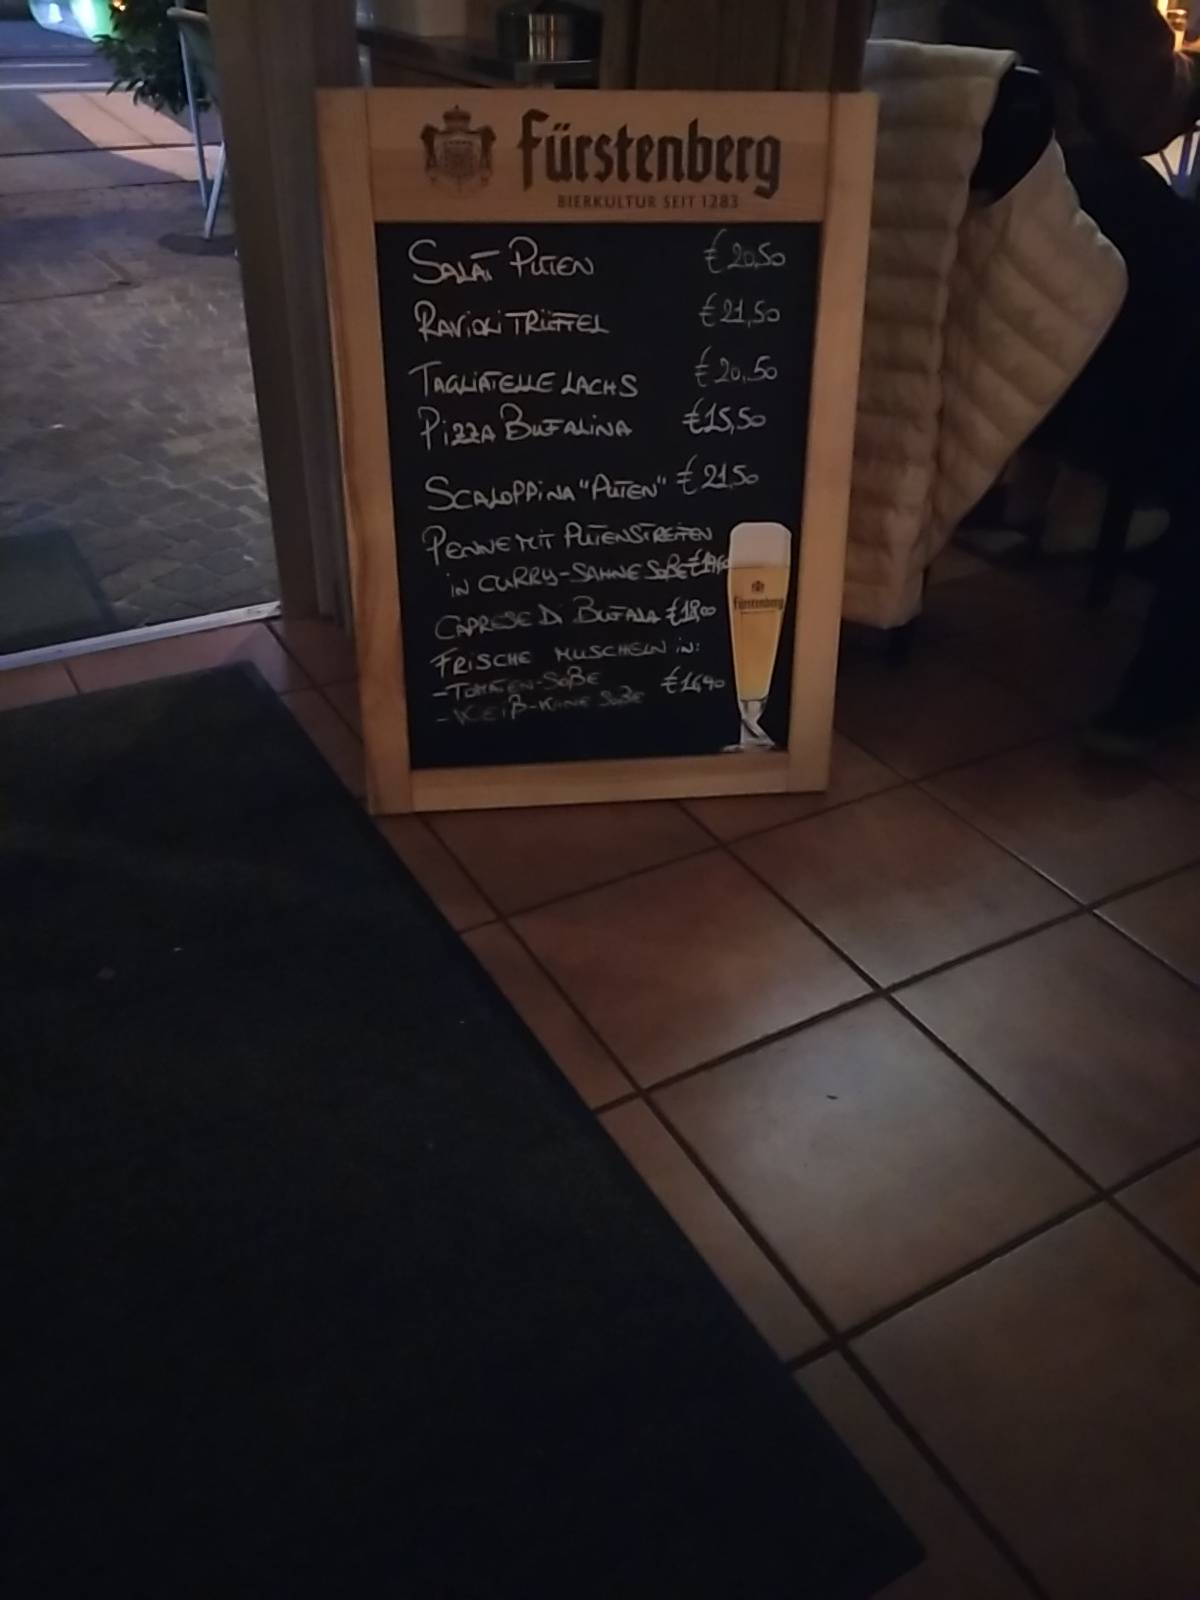 Fürstenberg
BIERKULTUR SEIT 1283
SALAT PUTEN € 20,50
RAVIOLI TRÜFFEL € 21,50
TAGLIATELLE LACHS € 20,50
PIZZA BUFALINA € 15,50
SCALOPPINA "PUTEN" € 21,50
PENNE MIT PUTENSTREIFEN
IN CURRY-SAHNE SOßE
CAPRESE DI BUFALA € 18,00
FRISCHE MUSCHELN in:
-TOMATEN-SOßE € 16,90
-WEIß-WEINE SOßE
Fürstenberg